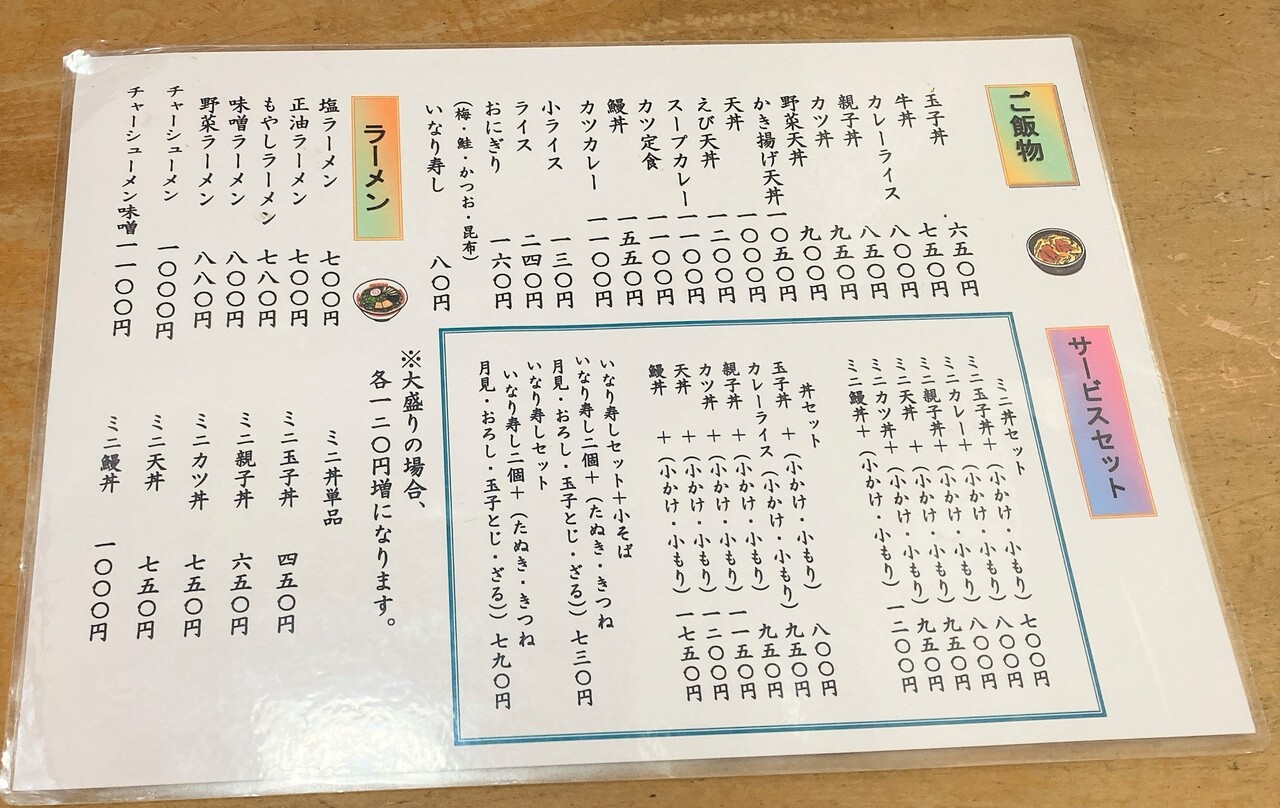 ご飯物
玉子丼 六五〇円
牛丼 七五〇円
カレーライス 八〇〇円
親子丼 八五〇円
カツ丼 九五〇円
野菜天丼 九〇〇円
かき揚げ天丼 一〇五〇円
天丼 一〇〇〇円
えび天丼 一二〇〇円
スープカレー 一〇〇〇円
カツ定食 一〇〇〇円
鰻丼 一五五〇円
カツカレー 一一〇〇円
小ライス 一三〇円
ライス 二四〇円
おにぎり 一六〇円
(梅・鮭・かつお・昆布)
いなり寿し 八〇円
ラーメン
塩ラーメン 七〇〇円
正油ラーメン 七〇〇円
もやしラーメン 七八〇円
味噌ラーメン 八〇〇円
野菜ラーメン 八八〇円
チャーシューメン 一〇〇〇円
チャーシューメン味噌 一一〇〇円
サービスセット
ミニ丼セット
ミニ玉子丼+(小かけ・小もり) 七〇〇円
ミニカレー+(小かけ・小もり) 八〇〇円
ミニ親子丼+(小かけ・小もり) 八〇〇円
ミニ天丼 +(小かけ・小もり) 九五〇円
ミニカツ丼+(小かけ・小もり) 九五〇円
ミニ鰻丼+(小かけ・小もり) 一二〇〇円
丼セット
玉子丼 +(小かけ・小もり) 八〇〇円
カレーライス(小かけ・小もり) 九五〇円
親子丼 +(小かけ・小もり) 九五〇円
カツ丼 +(小かけ・小もり) 一一五〇円
天丼 +(小かけ・小もり) 一二〇〇円
鰻丼 +(小かけ・小もり) 一七五〇円
いなり寿しセット+小そば
いなり寿し二個+(たぬき・きつね
月見・おろし・玉子とじ・ざる)) 七三〇円
いなり寿しセット
いなり寿し二個+(たぬき・きつね
月見・おろし・玉子とじ・ざる)) 七九〇円
※大盛りの場合、
各一二〇円増になります。
ミニ丼単品
ミニ玉子丼 四五〇円
ミニ親子丼 六五〇円
ミニカツ丼 七五〇円
ミニ天丼 七五〇円
ミニ鰻丼 一〇〇〇円